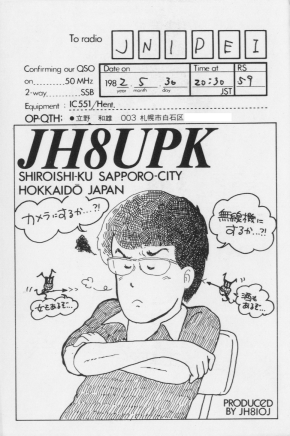 To radio JN1PEI
Confirming our QSO
on 50 MHz
2-way SSB
Date on
1982 5 30
year month day
Time at
20:30
JST
RS
59
Equipment : IC551/Hent.
OP·QTH: ●立野 和雄 003 札幌市白石区
JH8UPK
SHIROISHI-KU SAPPORO-CITY
HOKKAIDŌ JAPAN
カメラにするか…?!
無線機にするか…?!
女もあるぞ…
酒もあるぞ…
PRODUCED
BY JH8IOJ